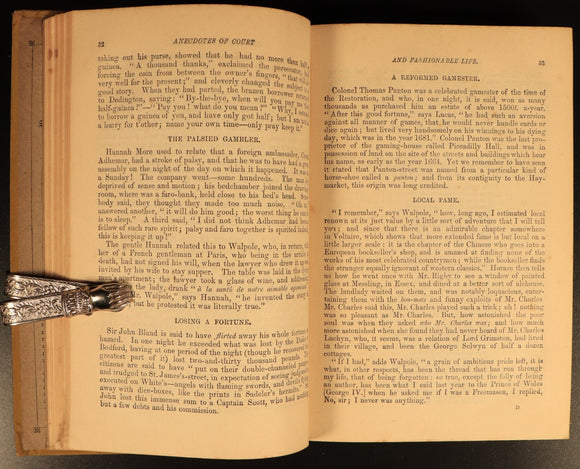 32 ANECDOTES OF COURT
taking out his purse, showed that he had no more than half a
guinea. "A thousand thanks," exclaimed the persecutor, half
forcing the coin from between the owner's fingers, "that will do
very well for the present;" and cleverly changed the subject to a
good story. When they had parted, the branon borrower returned
to Dodington, saying: "By-the-bye, when will you pay me this
half-guinea?"—"Pay you! what do you mean?" "Why, I wanted
to borrow a guinea of you, and have only got half; but I am not in
a hurry for t'other; name your own time—only pray keep it."
THE PALSIED GAMBLER.
Hannah More used to relate that a foreign ambassador, Count
Adhemar, had a stroke of palsy, and that he was to have had a great
assembly on the night of the day on which it happened. It was on
a Sunday! The company went—some hundreds. The man lay
deprived of sense and motion; his bedchamber joined the drawing-
room, where was a faro-bank, held close to his bed's head. Some-
body said, they thought they made too much noise. "Oh no,"
answered another, "it will do him good; the worst thing he can do
is to sleep." A third said, "I did not think Adhemar had been a
fellow of such rare spirit; palsy and faro together is spirited indeed,
this is keeping it up!"
The gentle Hannah related this to Walpole, who, in return, told
her of a French gentleman at Paris, who being in the article of
death, had not signed his will, when the lawyer who drew it was
invited by his wife to stay supper. The table was laid in the dying
man's apartment, the lawyer took a glass of wine, and addressing
the lady, drank "à la santé de notre aimable
Mr. Walpole," says Hannah, "he invented the story
but he protested it was literally true."
LOSING A FORTUNE.
Sir John Bland is said to have flirted away his whole fortune at
hazard. In one night he exceeded what was lost by the Duke of
Bedford, having at one period of the night (though he recovered the
greatest part of it) lost two-and-thirty thousand pounds. The
citizens are said to have "put on their double-channeled pumps
and trudged to St. James's-street, in expectation of seeing judgments
executed on White's—angels with flaming swords, and devils flying
away with dice-boxes, like the prints in Sadeler's hermits." Sir
John lost this immense sum to a Captain Scott, who had nothing
but a few debts and his commission.
AND FASHIONABLE LIFE. 33
A REFORMED GAMESTER.
Colonel Thomas Panton was a celebrated gamester of the time
of the Restoration, and who, in one night, it is said, won as many
thousands as purchased him an estate of above 1500l. a-year.
"After this good fortune," says Lucas, "he had such an aversion
against all manner of games, that he would never handle cards or
dice again; but lived very handsomely on his winnings to his dying
day, which was in the year 1681." Colonel Panton was the last pro-
prietor of the gaming-house called Piccadilly Hall, and was in
possession of land on the site of the streets and buildings which bear
his name, as early as the year 1664. Yet we remember to have seen
it stated that Panton-street was named from a particular kind of
horse-shoe called a panton; and from its contiguity to the Hay-
market, this origin was long credited.
LOCAL FAME.
"I remember," says Walpole, "how, long ago, I estimated local
renown at its just value by a little sort of adventure that I will tell
you; and since that there is an admirable chapter somewhere
in Voltaire, which shows that more extended fame is but local on a
little larger scale: it is the chapter of the Chinese who goes into an
European bookseller's shop, and is amazed at finding none of the
works of his most celebrated countrymen; while the bookseller finds
the stranger equally ignorant of western classics." Horace then tells
us how he went once with Mr. Rigby to see a window of painted
glass at Messling, in Essex, and dined at a better sort of alehouse.
The landlady waited on them, and was notably loquacious, enter-
taining them with the bon-mots and funny exploits of Mr. Charles
Mr. Charles said this, Mr. Charles played such a trick; oh! nothing
was so pleasant as Mr. Charles. But, how astonished the poor
soul was when they asked who Mr. Charles was; and how much
more astonished when she found they had never heard of Mr. Charles
Luchyn, who, it seems, was a relation of Lord Grimston, had lived
in their village, and been the George Selwyn of half a dozen
cottages.
"If I had," adds Walpole, "a grain of ambitious pride left, it is
what, in other respects, has been the thread that has run through
my life, that of being forgotten: so true, except the folly of being
an author, has been what I said last year to the Prince of Wales
[George IV.] when he asked me if I was a Freemason, I replied,
No, sir; I never was anything."
D